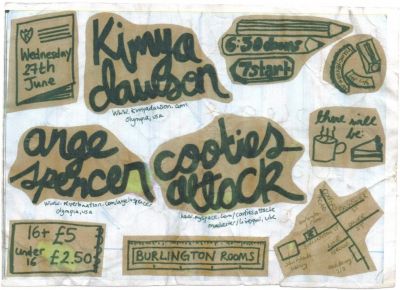 Wednesday
27th
June
Kimya
dawson
www.kimyadawson.com
olympia, usa
6:30 doors
7 start
ange
spencer
www.reverbnation.com/angelaspencer
olympia, usa
cooties
attack
www.myspace.com/cootiesattack
manchester/liverpool, uk
there will
be
16+ £5
under
16 £2.50
BURLINGTON ROOMS